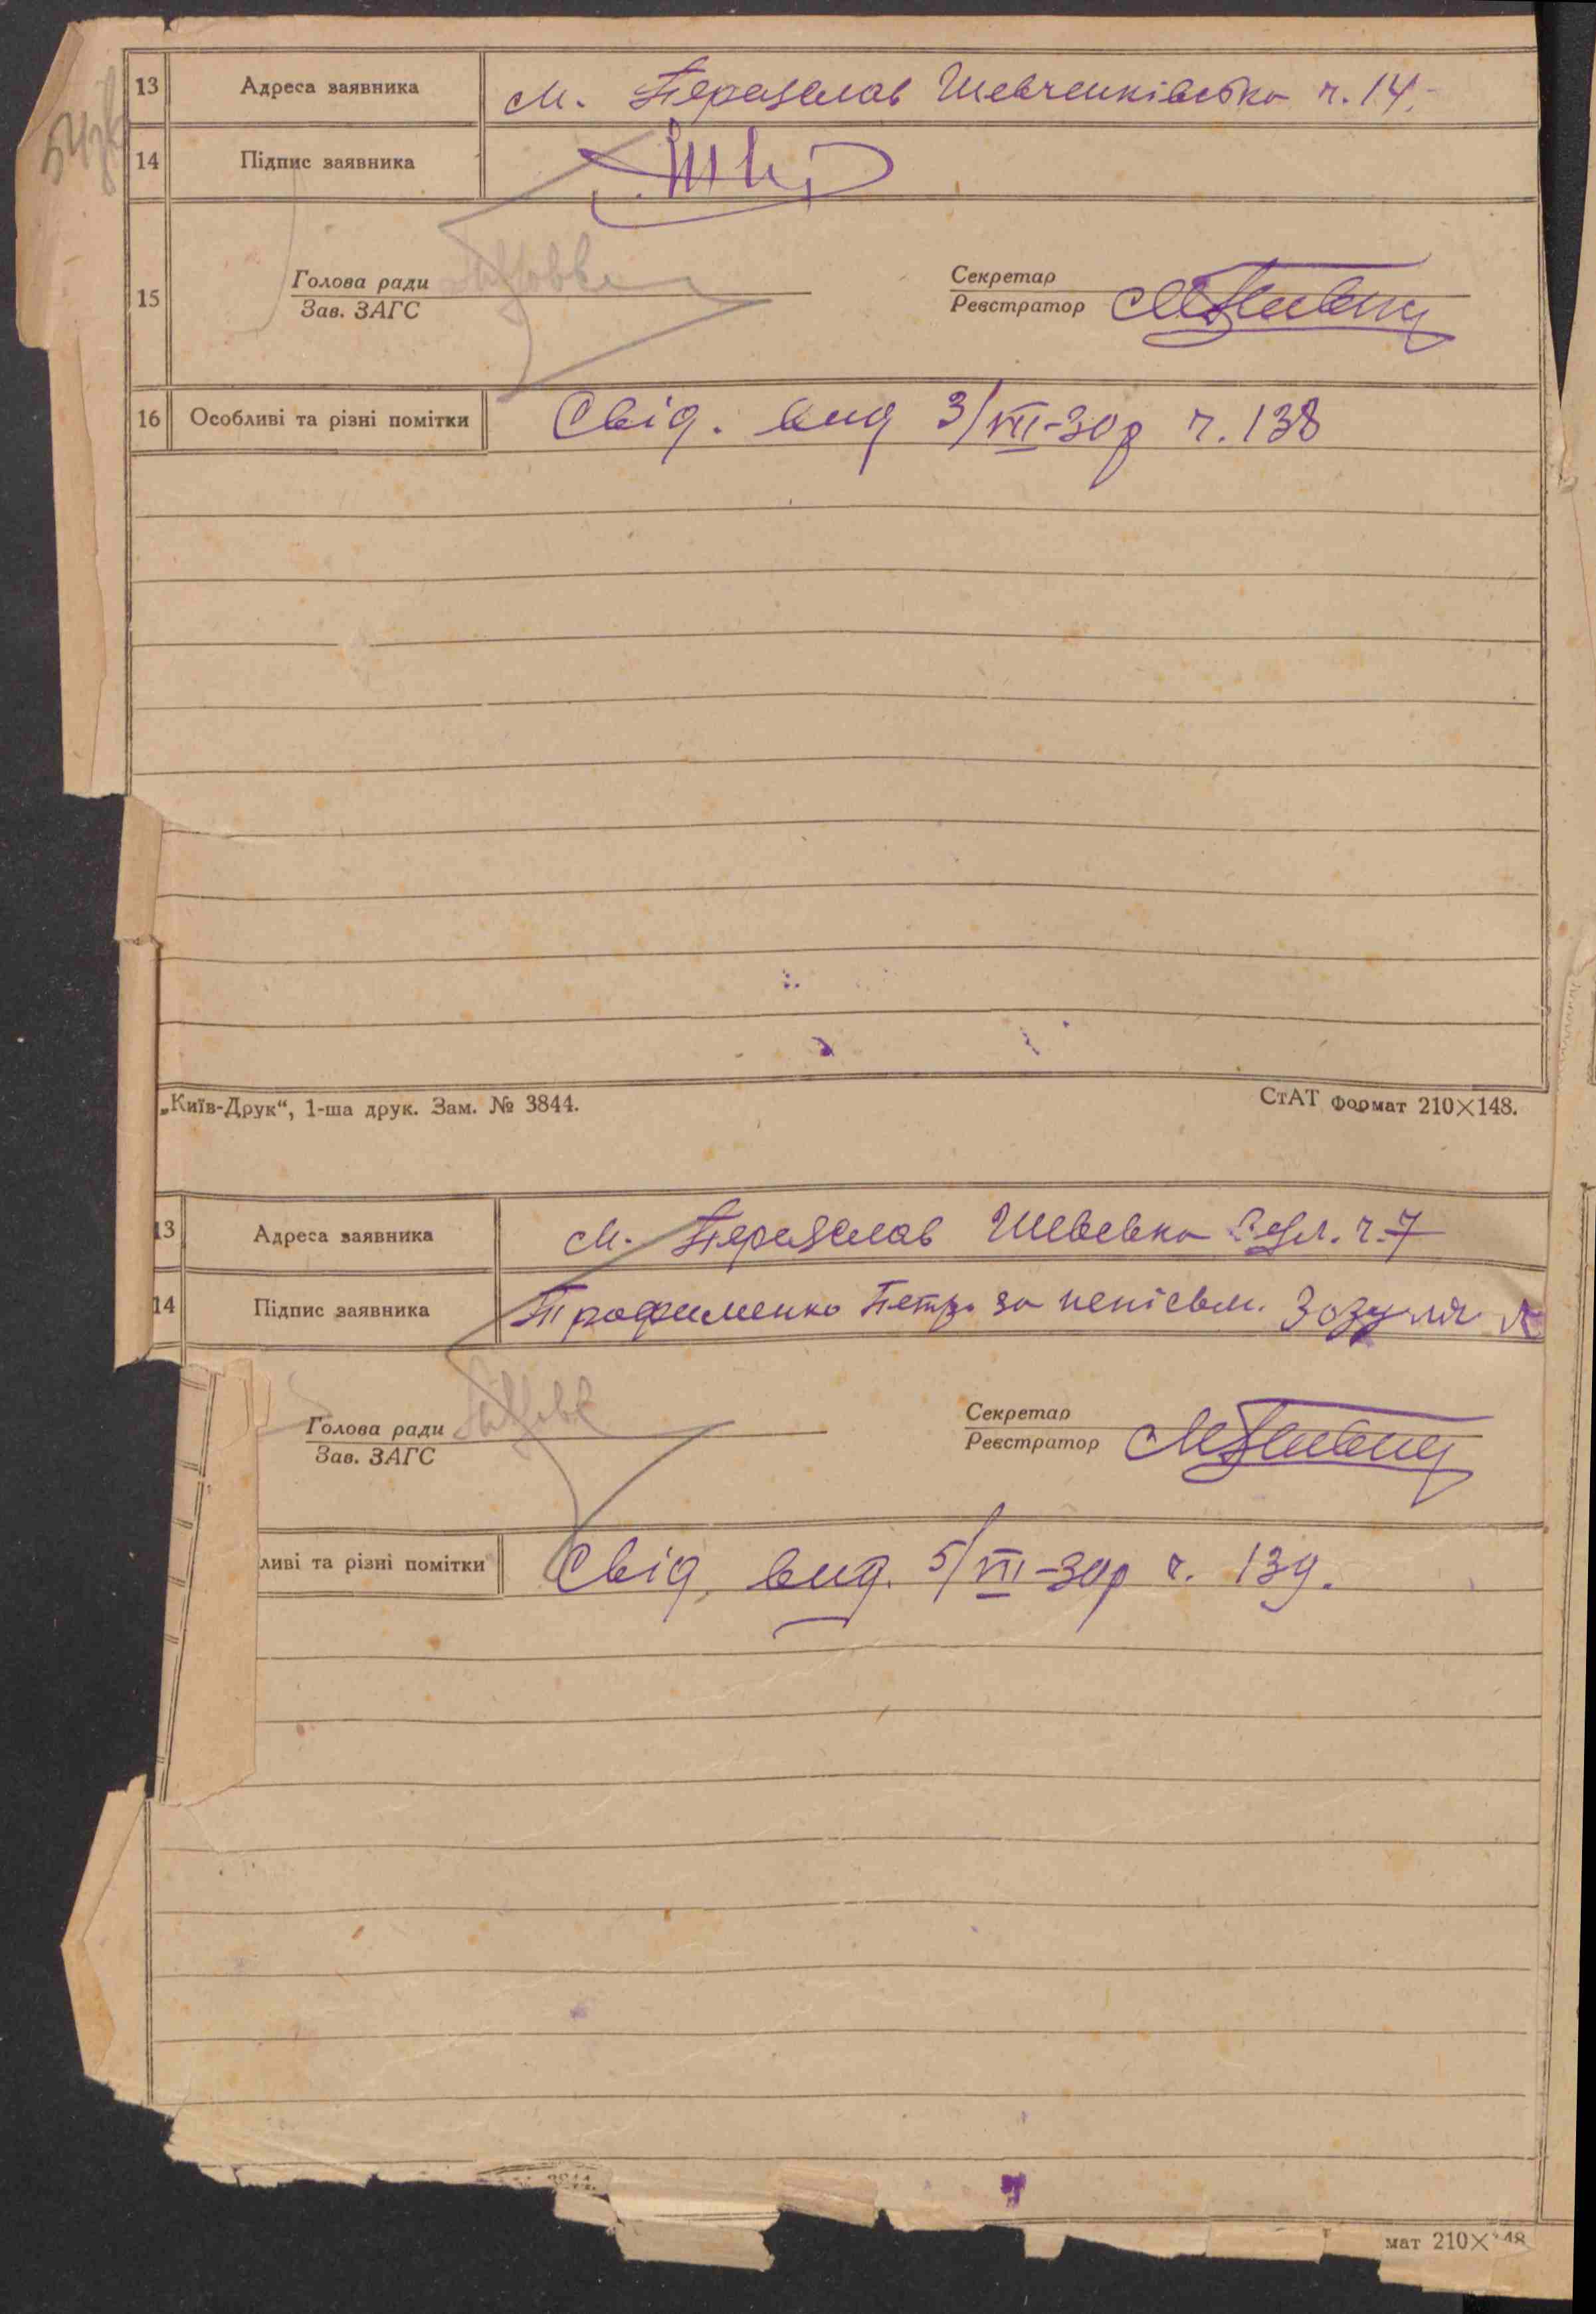 13 Адреса заявника м. Переяслав Шевченківська ч. 14.
14 Підпис заявника
15 Голова ради
Зав. ЗАГС
Секретар
Реєстратор
16 Особливі та різні помітки Свід. вид 3/VIII-30р ч. 138
„Київ-Друк“, 1-ша друк. Зам. № 3844.
СтАТ формат 210×148.
13 Адреса заявника м. Переяслав ч. 7
14 Підпис заявника Трофименко Петро за неписьм. Зозуля
Голова ради
Зав. ЗАГС
Секретар
Реєстратор
ливі та різні помітки Свід. вид. 5/VIII-30р ч. 139.
мат 210×148